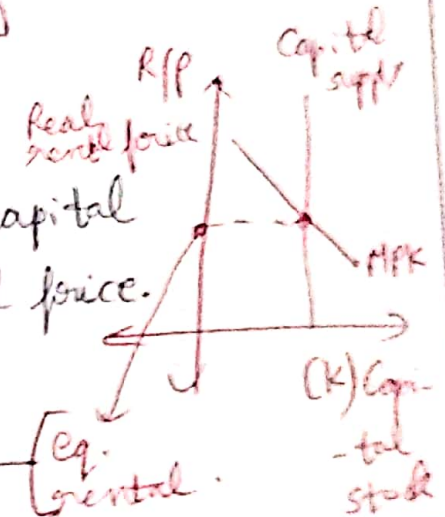 R/P
Capital
supply
Real
rental price
apital
price.
MPK
(K) Capi-
-tal
stock
eq.
rental.